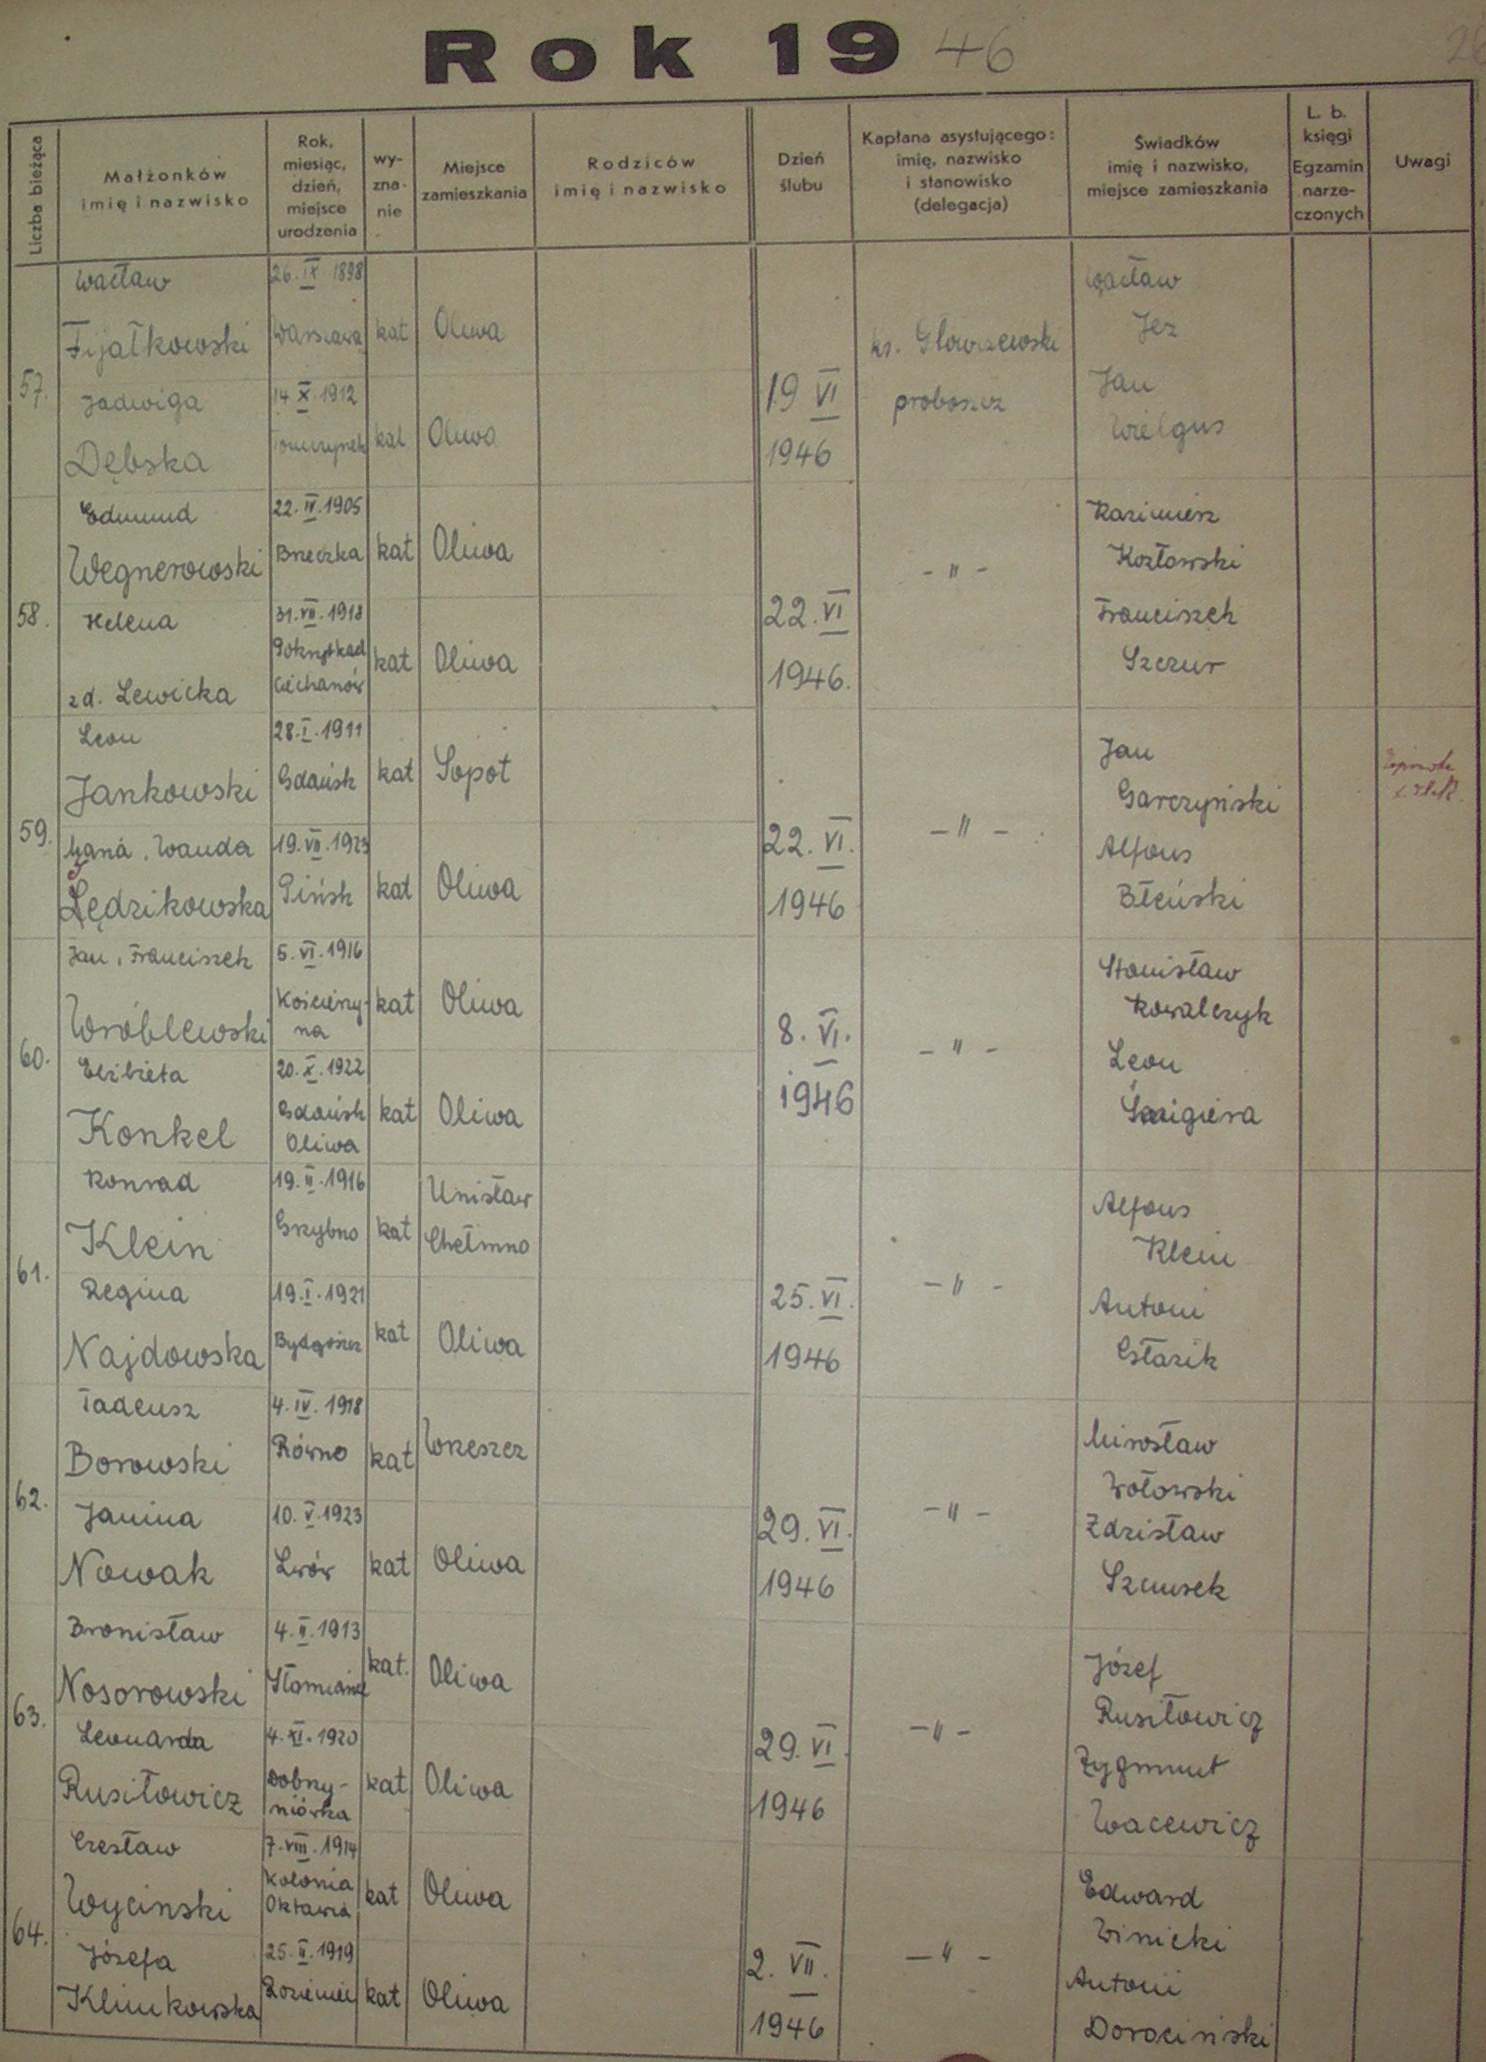 Rok 19 46
Liczba bieżąca
Małżonków
imię i nazwisko
Rok,
miesiąc,
dzień,
miejsce
urodzenia
wy-
zna-
nie
Miejsce
zamieszkania
Rodziców
imię i nazwisko
Dzień
ślubu
Kapłana asystującego:
imię, nazwisko
i stanowisko
(delegacja)
Świadków
imię i nazwisko,
miejsce zamieszkania
L. b.
księgi
Egzamin
narze-
czonych
Uwagi
57.
Wacław
Fijałkowski
26. IX 1898
Warszawa
kat
Oliwa
Jadwiga
Dębska
14 X. 1912
kat
Oliwa
19 VI
1946
ks. Głowczewski
proboszcz
Wacław
Jeż
Jan
Wielgus
58.
Edmund
Wegnerowski
22. IV. 1905
Brzeczka
kat
Oliwa
Helena
zd. Lewicka
31. VII. 1918
Ciechanów
kat
Oliwa
22. VI
1946.
- " -
Kazimierz
Kozłowski
Franciszek
Szczur
59.
Leon
Jankowski
28. I. 1911
Gdańsk
kat
Sopot
Maria, Wanda
Lędzikowska
19. VII. 1923
Pińsk
kat
Oliwa
22. VI.
1946
- " -
Jan
Garczyński
Alfons
Błeński
60.
Jan, Franciszek
Wróblewski
5. VI. 1916
Kościerzy-
na
kat
Oliwa
Elżbieta
Konkel
20. X. 1922
Gdańsk
Oliwa
kat
Oliwa
8. VI.
1946
- " -
Stanisław
Kowalczyk
Leon
Śmigiera
61.
Konrad
Klein
19. II. 1916
Grzybno
kat
Unisław
Chełmno
Regina
Najdowska
19. I. 1921
Bydgoszcz
kat
Oliwa
25. VI.
1946
- " -
Alfons
Klein
Antoni
62.
Tadeusz
Borowski
4. IV. 1918
Równo
kat
Wrzeszcz
Janina
Nowak
10. V. 1923
Lwów
kat
Oliwa
29. VI.
1946
- " -
Mirosław
Wołowski
Zdzisław
63.
Bronisław
Nosorowski
4. II. 1913
kat.
Oliwa
Leonarda
Rusiłowicz
4. XI. 1920
Dobry-
niówka
kat
Oliwa
29. VI.
1946
- " -
Józef
Rusiłowicz
Zygmunt
Wacewicz
64.
Czesław
Wycinski
7. VIII. 1914
Kolonia
Oktawia
kat
Oliwa
Józefa
Klimkowska
25. II. 1919
kat
Oliwa
2. VII.
1946
- " -
Edward
Winicki
Antoni
Dorociński